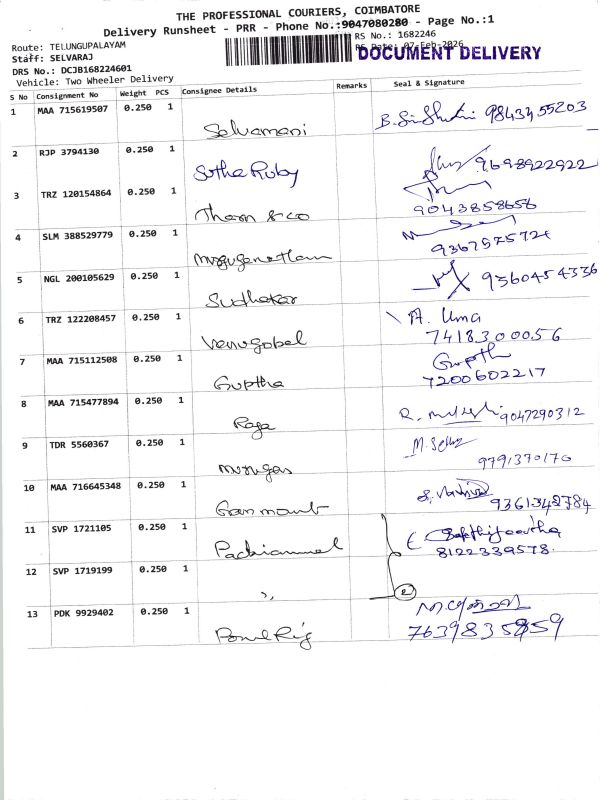 THE PROFESSIONAL COURIERS, COIMBATORE
Delivery Runsheet - PRR - Phone No.:9047080280 - Page No.:1
Route: TELUNGUPALAYAM
RS No.: 1682246
Staff: SELVARAJ
RS Date: 07-Feb-2026
DOCUMENT DELIVERY
DRS No.: DCJB168224601
Vehicle: Two Wheeler Delivery
S No Consignment No Weight PCS Consignee Details Remarks Seal & Signature
1 MAA 715619507 0.250 1 Selvamani 9843455203
2 RJP 3794130 0.250 1 Sutha Ruby 9698922922
3 TRZ 120154864 0.250 1 Tharn & co 9043858656
4 SLM 388529779 0.250 1 9367575724
5 NGL 200105629 0.250 1 Sudhakar 9360454336
6 TRZ 122208457 0.250 1 Venugobal A. Uma
7418300056
7 MAA 715112508 0.250 1 Guptha Gupth
7200602217
8 MAA 715477894 0.250 1 Raga R. 9047290312
9 TDR 5560367 0.250 1 Murugas M. Selv
9791370170
10 MAA 716645348 0.250 1 9361342784
11 SVP 1721105 0.250 1 Packiammal
8122339578
12 SVP 1719199 0.250 1 ,, 2
13 PDK 9929402 0.250 1 7639835859